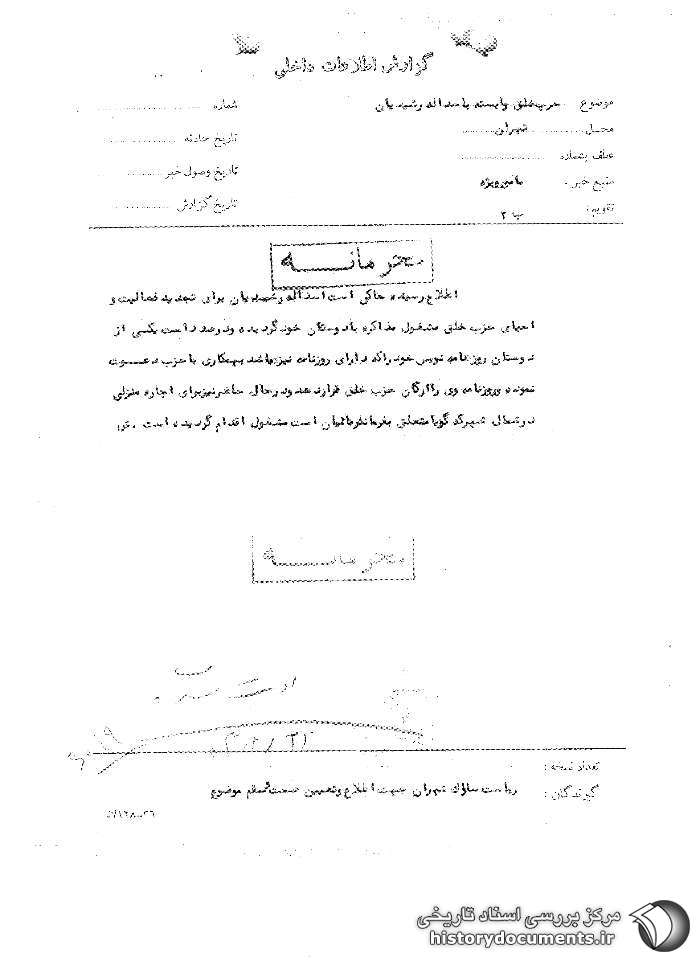 گزارش اطلاعات داخلی
موضوع حزب خلق وابسته باسداله رشیدیان
شماره
محل تهران
تاریخ حادثه
عطف بشماره
تاریخ وصول خبر
منبع خبر: مامور ویژه
تاریخ گزارش
تقویم: ب ۲
محرمانــــه
اطلاع رسیده حاکی است اسداله رشیدیان برای تجدید فعالیت و
احیای حزب خلق مشغول مذاکره با دوستان خود گردیده و درصدد است یکی از
دوستان روزنامه نویس خود را که دارای روزنامه نیز باشد بهمکاری با حزب دعــوت
نموده و روزنامه وی را ارگان حزب خلق قرار دهد و در حال حاضر نیز برای اجاره منزلی
در شمال شهر که گویا متعلق بفرمانفرمائیان است مشغول اقدام گردیده است.
محرمانــــه
تعداد نسخه:
گیرندگان: ریاست ساواک تهران جهت اطلاع و تعیین صحت و سقم موضوع
مرکز بررسی اسناد تاریخی
historydocuments.ir